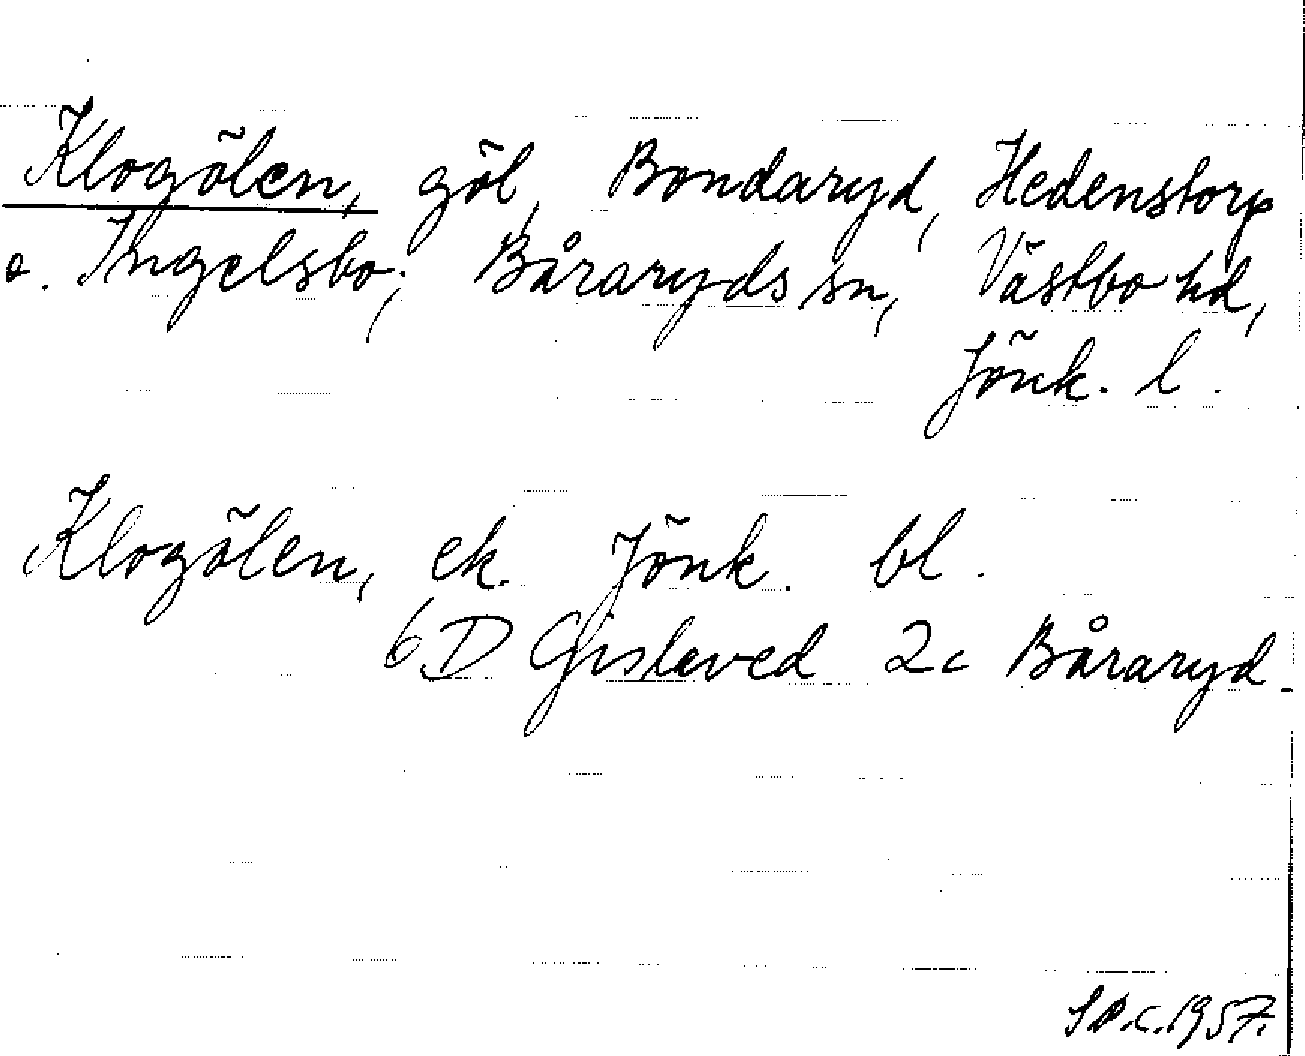 Klogölen, göl, Bondaryd, Hedenstorp
o. Ingelsbo; Båraryds sn, Västbo hd,
Jönk. l.
Klogölen, ek. Jönk. bl.
6D Gislaved 2c Båraryd.
1957.